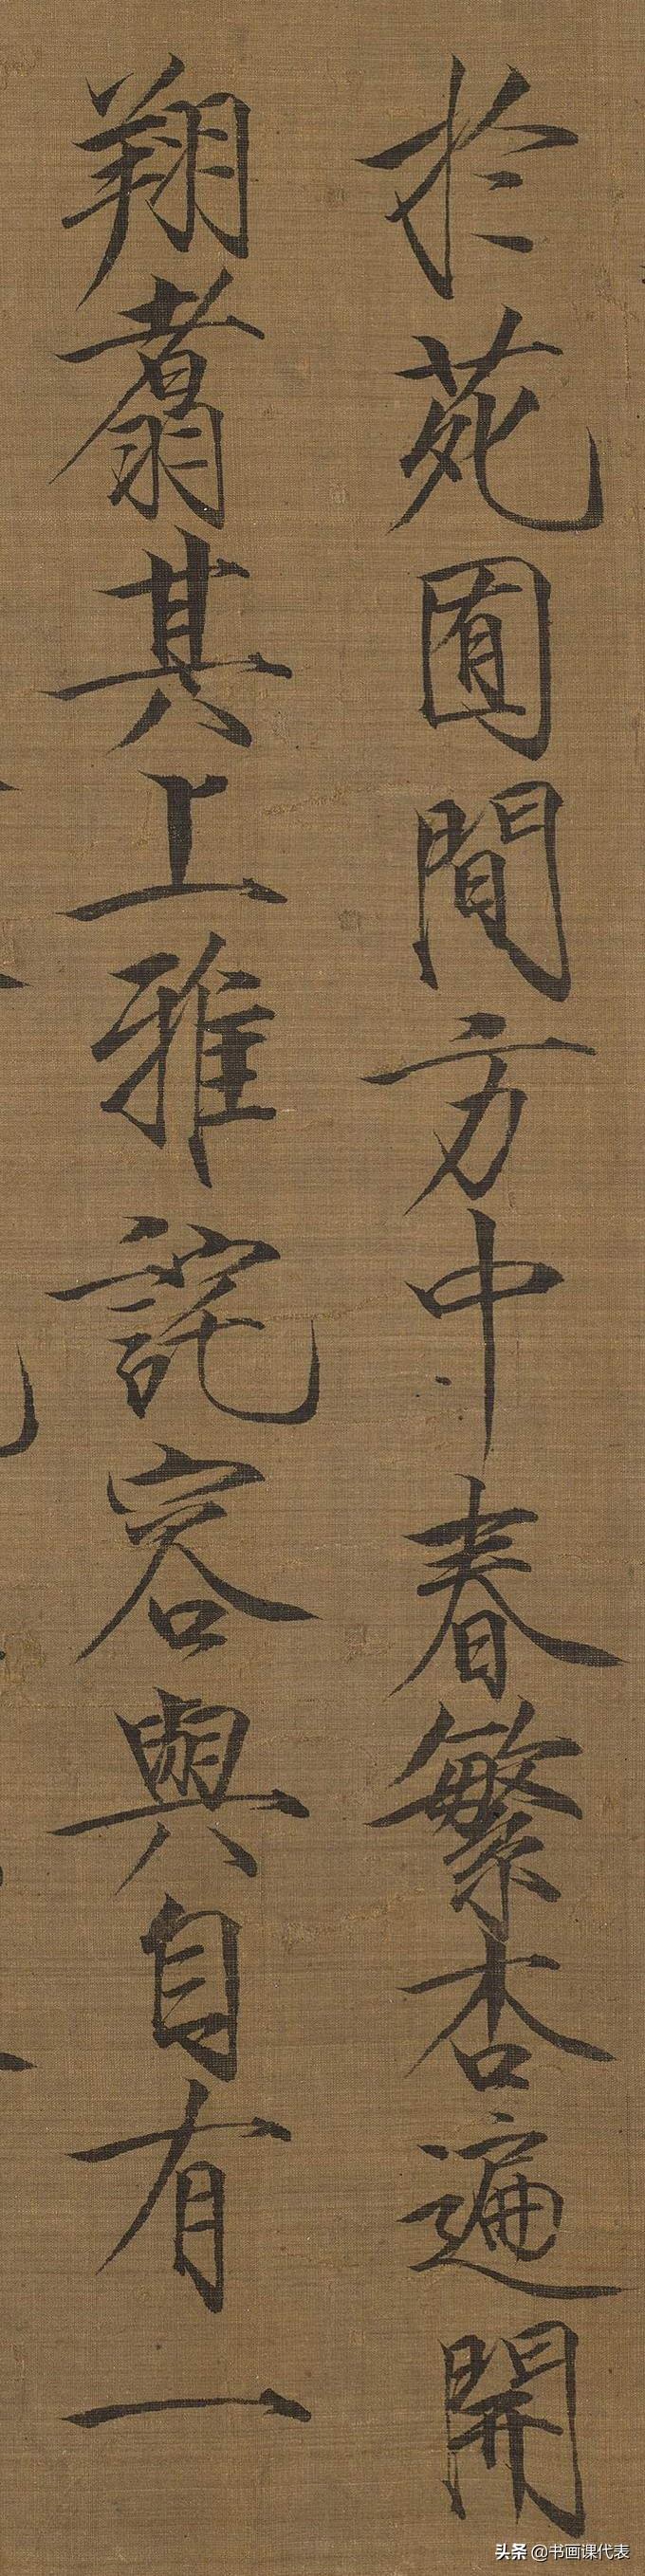 於苑囿間方中春繁杏遍開
翔翥其上雅詫容與自有一
头条 @书画课代表